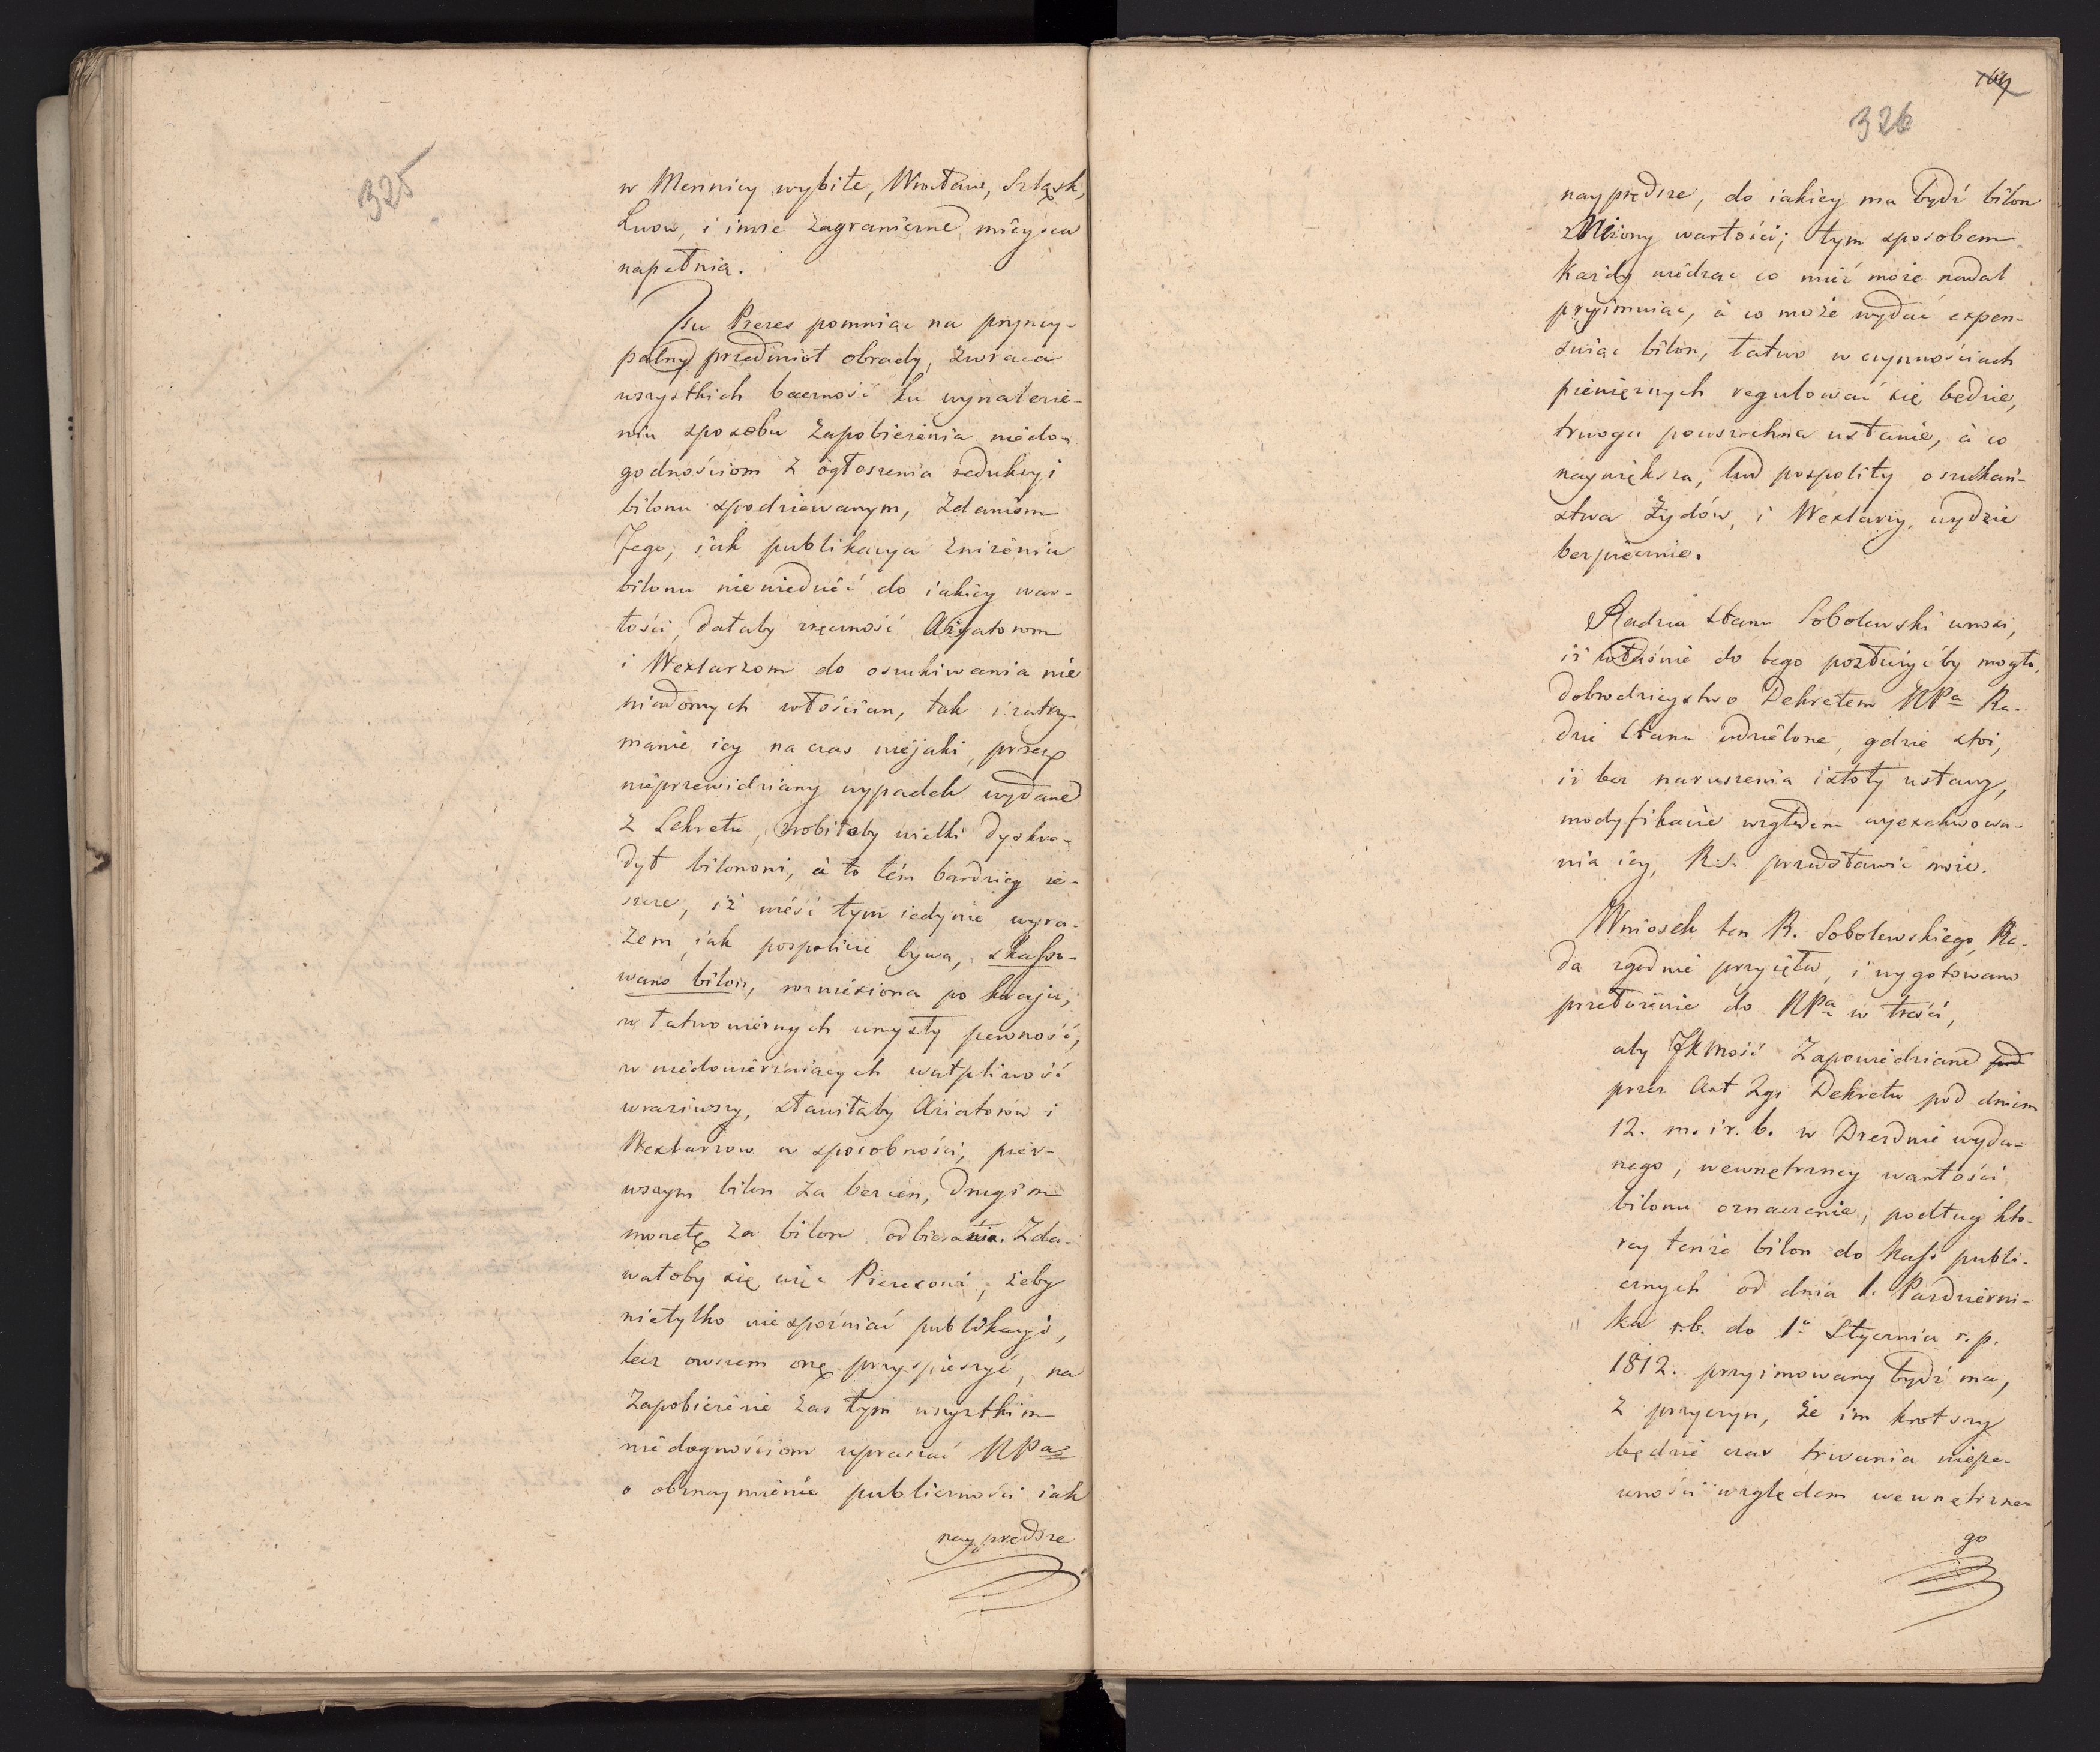 325
w Mennicy wybite, Wrocław, Szląsk,
Lwow, i inne zagraniczne mieysca
napełnia.
Tu Prezes pomniąc na pryncy-
palny przedmiot obrady, zwraca
wszystkich baczność ku wynalezie-
niu sposobu zapobieżenia niedo-
godnościom z ogłoszenia redukcyi
bilonu spodziewanym, zdaniem
Jego, iak publikacya zniżenia
bilonu niewiedzieć do iakiey war-
tości, dałaby zręczność Ażyatorom
i Wexlarzom do oszukiwania nie
wiadomych włościan, tak i zatrzy-
manie iey na czas niejaki, przez
nieprzewidziany wypadek wydane
z Sekretu, zrobiłaby wielki dyskre-
dyt bilononi, à to tém bardziey ie-
szcze, iż wieść tym iedynie wyra-
zem, iak pospolicie bywa, skasso-
wano bilon, rozniesiona po kraju,
w łatwowiernych umysły pewność,
w niedowierzaiących wątpliwość
wraziwszy, stawiłaby Aziatorów i
Wexlarzow w sposobności, pier-
wszym bilon za bezcen, drugim
monetę za bilon odbierania. Zda-
wałoby się więc Prezesowi, żeby
nietylko nie spóźniać publikacyi,
lecz owszem onę przyspieszyć, na
zapobieżenie zas tym wszystkim
niedognościom upraszać NPa
o obznaymienie publiczności iak
nayprędsze
169
326
nayprędsze, do iakiey ma bydź bilon
zniżony wartości; tym sposobem
każdy wiedząc co mieć może nadal
przyimuiąc, à co może wydać expen-
suiąc bilon, łatwo w czynnościach
pieniężnych regulować się będzie,
trwoga powszechna ustanie, à co
naywiększa, lud pospolity oszukań-
stwa Żydów, i Wexlarzy, uydzie
bezpiecznie.
Radzca Stanu Sobolewski wnosi,
iż właśnie do tego posłużyćby mogło,
dobrodzieystwo Dekretem NPa Ra-
dzie Stanu udzielone, gdzie stoi,
iż bez naruszenia istoty ustawy,
modyfikacie względem wyexekwowa-
nia iey, R.S. przedstawić może.
Wniosek ten R. Sobolewskiego, Ra-
da zgodnie przyięła, i wygotowano
przełożenie do NPa w treści,
aby JKMość zapowiedziane pod
przez Art 2gi Dekretu pod dniem
12. m. i r. b. w Dreznie wyda-
nego, wewnętrzney wartości
bilonu oznaczenie, podług kto-
rey tenże bilon do Kass publi-
cznych od dnia 1. Pazdzierni-
ka r.b. do 1o Stycznia r. p.
1812. przyimowany bydź ma,
z przyczyn, że im krotszy
będzie czas trwania niepe-
wności względem wewnętrzne-
go